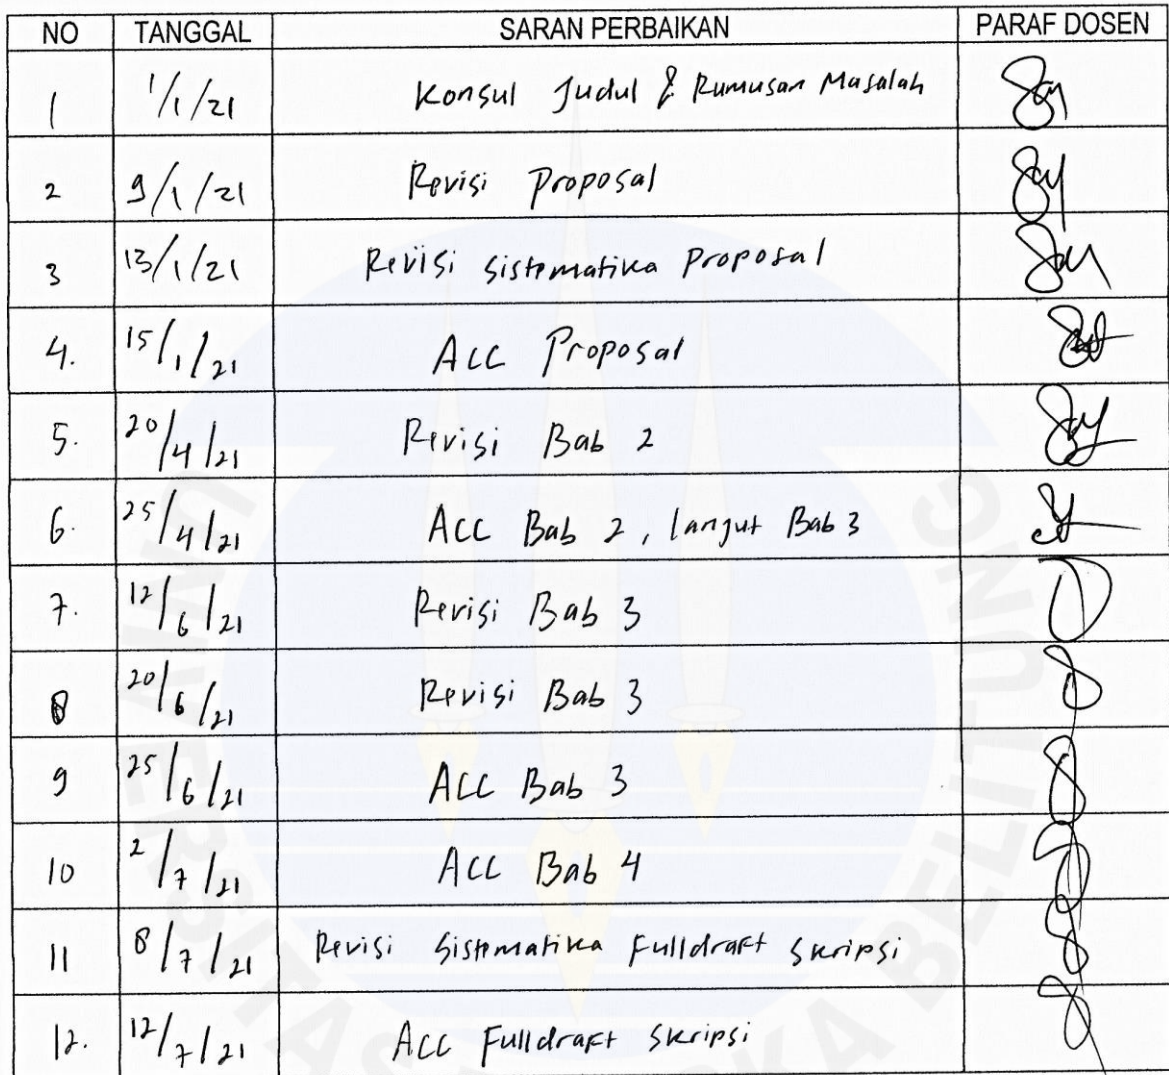 NO TANGGAL SARAN PERBAIKAN PARAF DOSEN
1 1/1/21 Konsul Judul & Rumusan Masalah
2 9/1/21 Revisi Proposal
3 13/1/21 Revisi Sistematika Proposal
4. 15/1/21 ACC Proposal
5. 20/4/21 Revisi Bab 2
6. 25/4/21 ACC Bab 2, lanjut Bab 3
7. 12/6/21 Revisi Bab 3
8 20/6/21 Revisi Bab 3
9 25/6/21 ACC Bab 3
10 2/7/21 ACC Bab 4
11 8/7/21 Revisi Sistematika Fulldraft Skripsi
12. 12/7/21 ACC Fulldraft Skripsi
UNIVERSITAS BANGKA BELITUNG